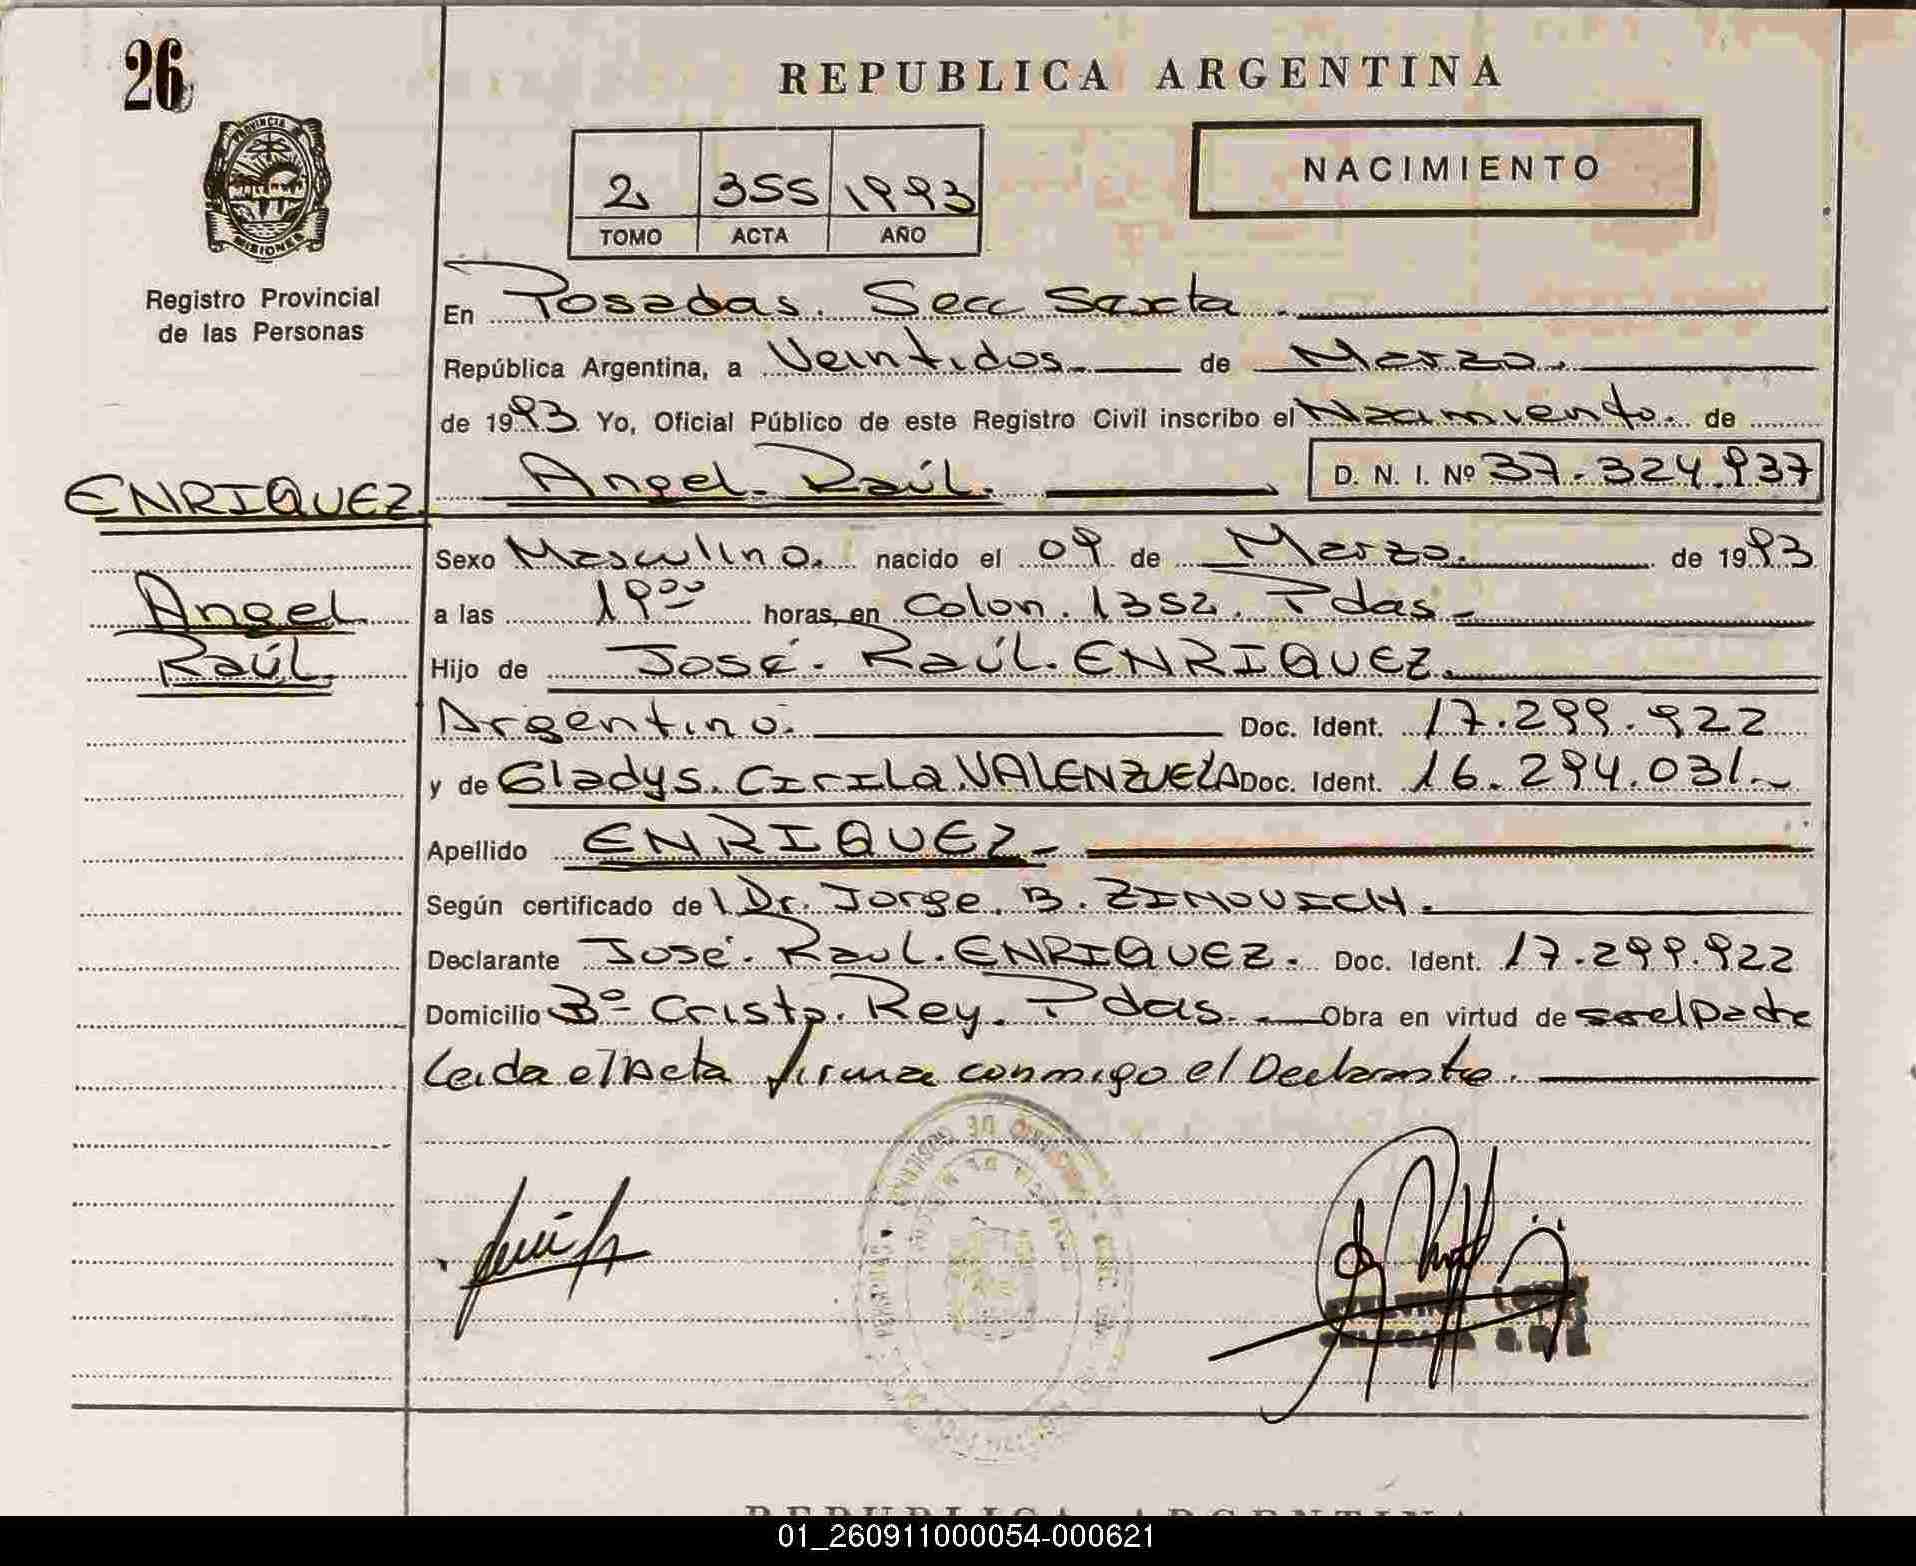 26
REPUBLICA ARGENTINA
PROVINCIA
MISIONES
Registro Provincial
de las Personas
2 355 1993
TOMO ACTA AÑO
NACIMIENTO
En Posadas. Secc Sexta
República Argentina, a Veintidos de Marzo.
de 1993 Yo, Oficial Público de este Registro Civil inscribo el Nacimiento. de
ENRIQUEZ Angel. Raúl. D. N. I. Nº 37.324.937
Sexo Masculino. nacido el 09 de Marzo. de 1993
Angel a las 19ºº horas, en Colon. 1352. Pdas.
Raúl. Hijo de José. Raúl. ENRIQUEZ.
Argentino. Doc. Ident. 17.299.922
y de Gladys. Cirila. VALENZUELA Doc. Ident. 16.294.031.
Apellido ENRIQUEZ.
Según certificado de l Dr. Jorge. B. ZINOVICH.
Declarante José. Raul. ENRIQUEZ. Doc. Ident. 17.299.922
Domicilio Bº Cristo. Rey. Pdas. Obra en virtud de ser el padre
Leida el Acta firma conmigo el Declarante.
REPUBLICA ARGENTINA
01_260911000054-000621